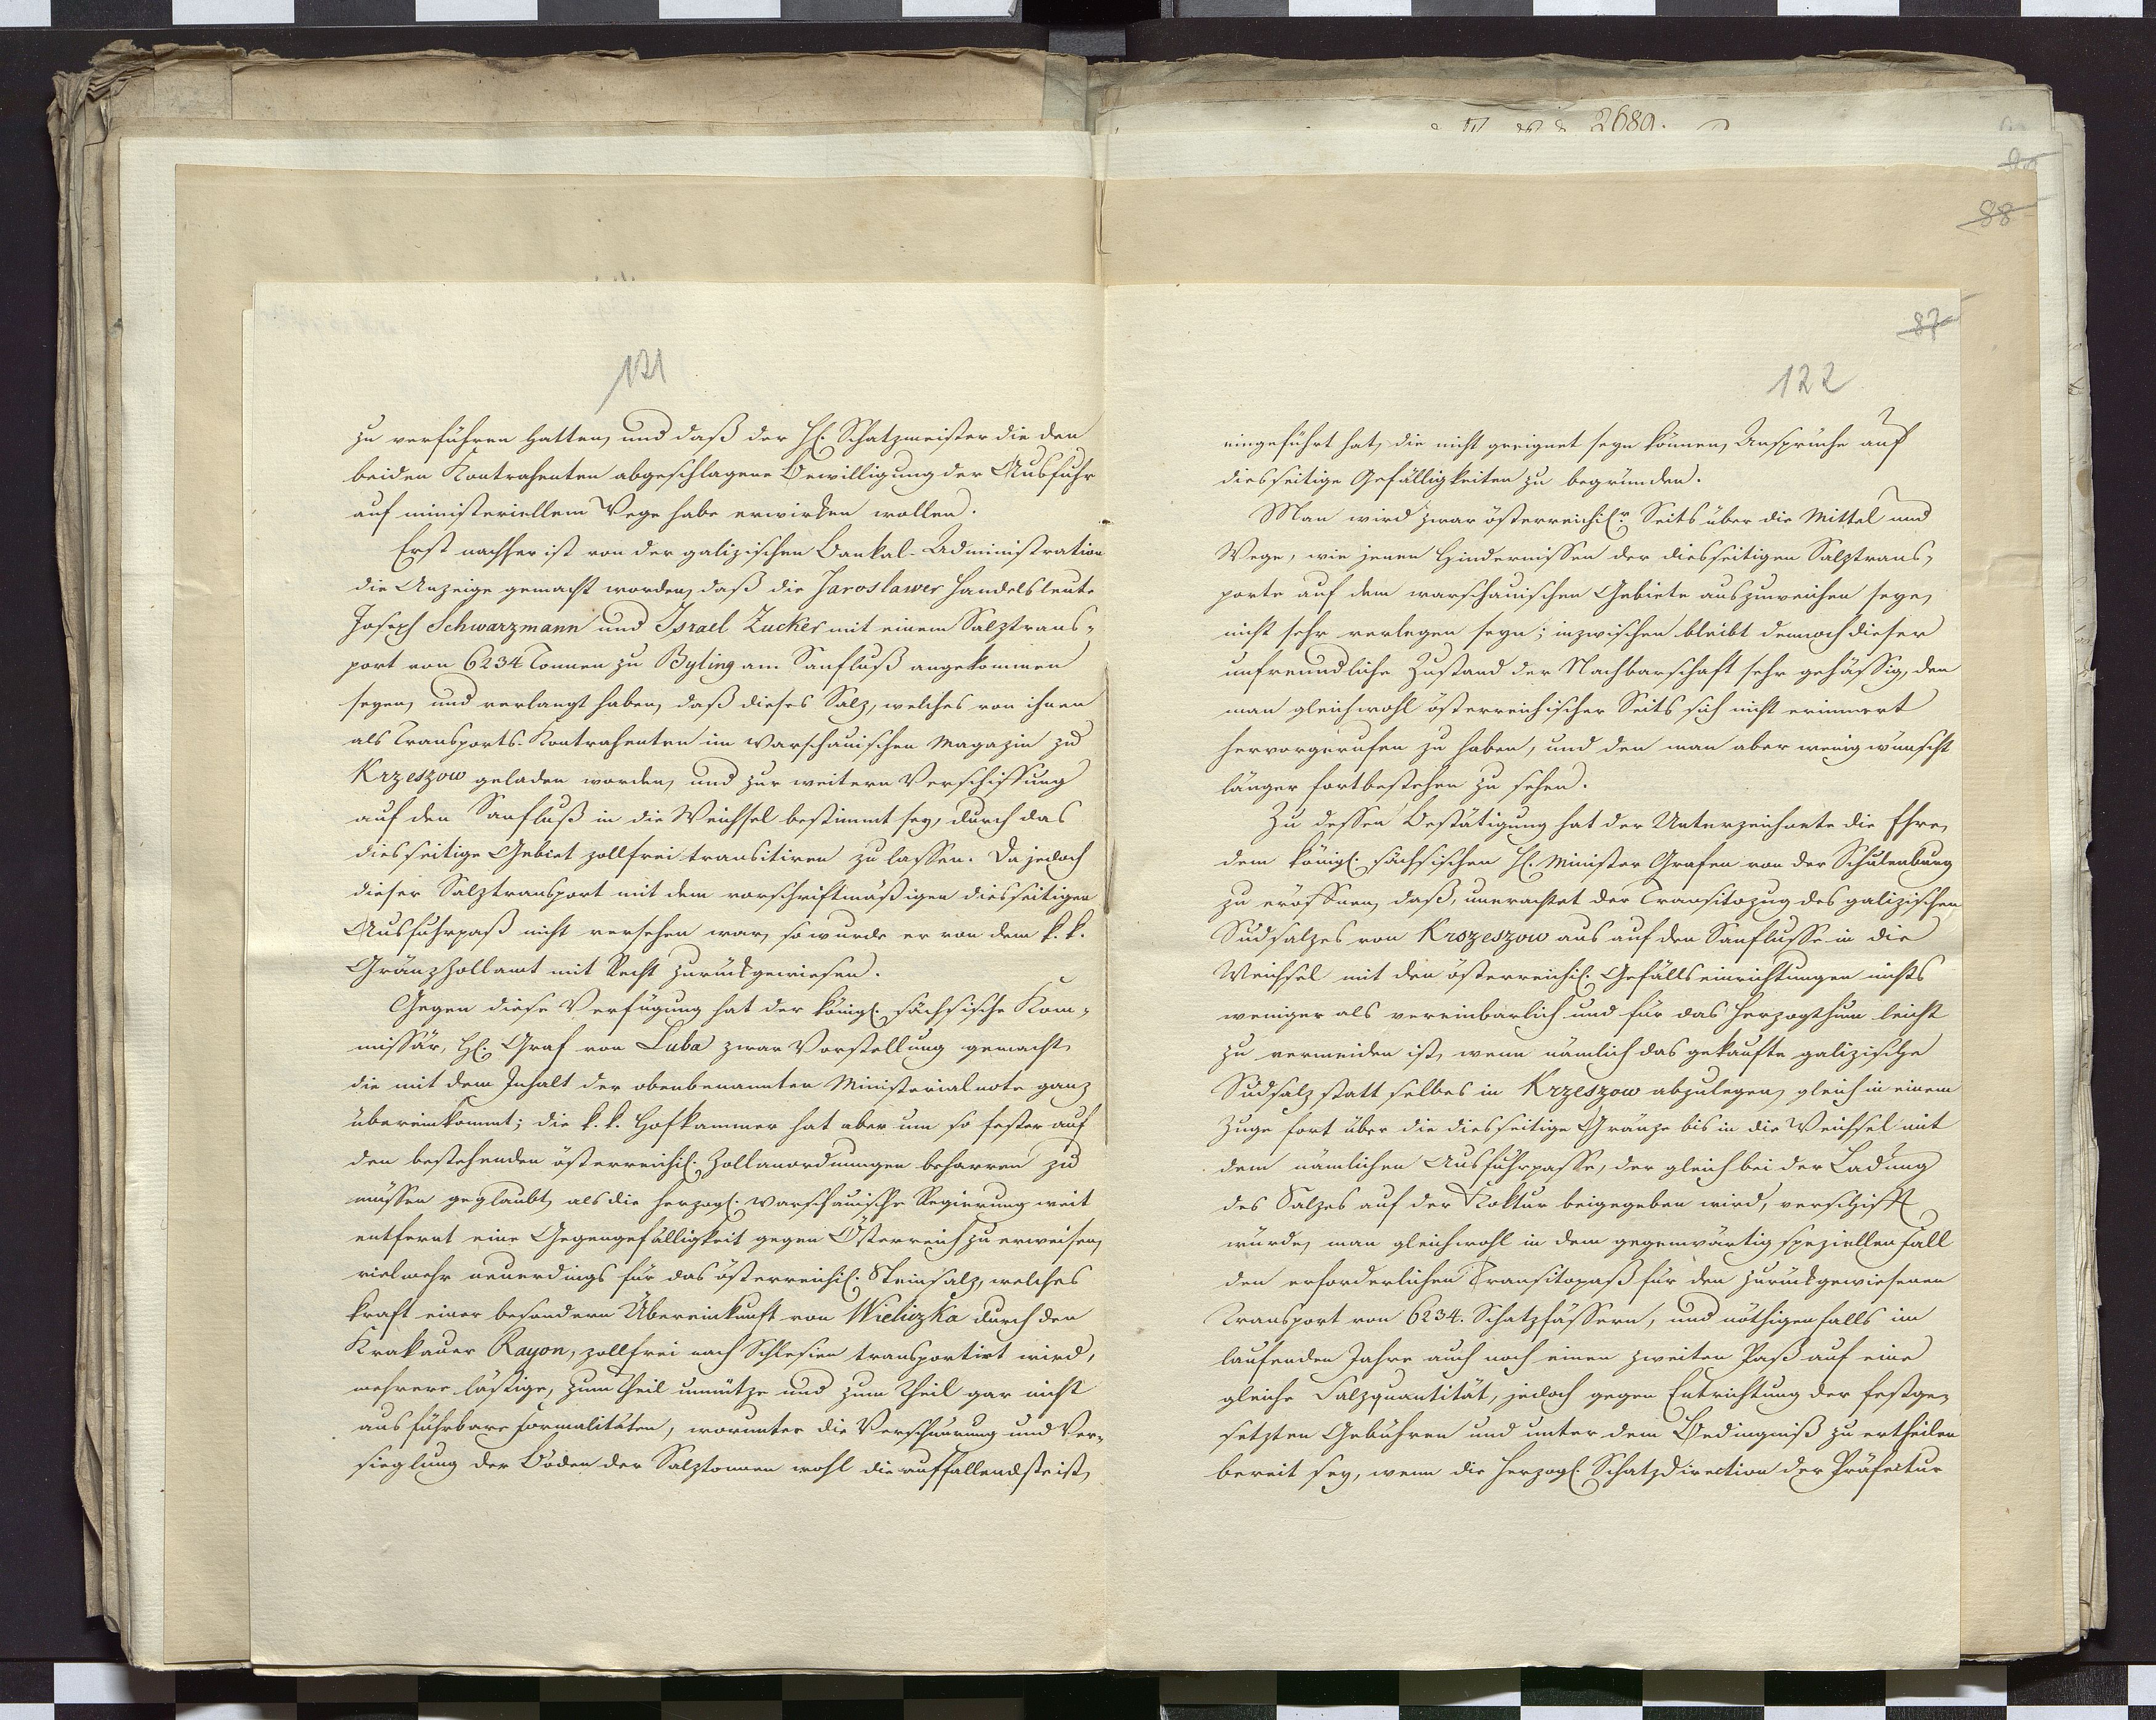 2680.
88
87
121
zu verführen hatten, und daß der H. Schatzmeister die den
beiden Kontrahenten abgeschlagene Bewilligung der Ausfuhr
auf ministeriellem Wege habe erwirken wollen.
Erst nachher ist von der galizischen Bankal-Administration
die Anzeige gemacht worden, daß die Jaroslawer Handelsleute
Joseph Schwarzmann und Israel Zucker mit einem Salztrans-
port von 6234 Tonnen zu Byling am Sanfluß angekommen
seyen, und verlangt haben, daß dieses Salz, welches von ihnen
als Transports-Kontrahenten im warschauischen Magazin zu
Krzeszow geladen worden, und zur weitern Verschiffung
auf den Sanfluß in die Weichsel bestimmt sey, durch das
diesseitige Gebiet zollfrei transitiren zu lassen. Da jedoch
dieser Salztransport mit dem vorschriftmäßigen diesseitigen
Ausfuhrpaß nicht versehen war, so wurde er von dem k. k.
Gränzzollamt mit Recht zurückgewiesen.
Gegen diese Verfügung hat der königl. sächsische Kom-
missär, H. Graf von Luba zwar Vorstellung gemacht,
die mit dem Inhalt der obenbenannten Ministerialnote ganz
übereinkommt; die k. k. Hofkammer hat aber um so fester auf
den bestehenden österreichis. Zollanordnungen beharren zu
müssen geglaubt, als die herzogl. warschauische Regierung weit
entfernt eine Gegengefälligkeit gegen Österreich zu erweisen,
vielmehr neuerdings für das österreichis. Steinsalz, welches
kraft einer besondern Übereinkunft von Wieliczka durch den
Krakauer Rayon, zollfrei nach Schlesien transportirt wird,
mehrere lästige, zum Theil unnütze und zum Theil gar nicht
ausführbare Formalitäten, worunter die Verschnürung und Ver-
sieglung der Böden der Salztonnen wohl die auffallendste ist,
122
eingeführt hat, die nicht geeignet seyn können, Ansprüche auf
diesseitige Gefälligkeiten zu begründen.
Man wird zwar österreichisr. Seits über die Mittel und
Wege, wie jenen Hindernissen der diesseitigen Salztrans-
porte auf dem warschauischen Gebiete auszuweichen seye,
nicht sehr verlegen seyn; inzwischen bleibt dennoch dieser
unfreundliche Zustand der Nachbarschaft sehr gehässig, den
man gleichwohl österreichischer Seits sich nicht erinnert
hervorgerufen zu haben, und den man aber wenig wünscht
länger fortbestehen zu sehen.
Zu dessen Bestätigung hat der Unterzeichnete die Ehre,
dem königl. sächsischen H. Minister Grafen von der Schulenburg
zu eröffnen, daß, unerachtet der Transitozug des galizischen
Sudsalzes von Krozeszow aus auf den Sanflusse in die
Weichsel mit den österreichis. Gefällseinrichtungen nichts
weniger als vereinbarlich und für das Herzogthum leicht
zu vermeiden ist, wenn nämlich das gekaufte galizische
Sudsalz statt selbes in Krzeszow abzulegen, gleich in einem
Zuge fort über die diesseitige Gränze bis in die Weichsel mit
dem nämlichen Ausfuhrpasse, der gleich bei der Ladung
des Salzes auf der Koktur beigegeben wird, verschifft
würde, man gleichwohl in dem gegenwärtig speziellen Fall
den erforderlichen Transitopaß für den zurückgewiesenen
Transport von 6234. Schatzfässern, und nöthigenfalls im
laufenden Jahre auch noch einen zweiten Paß auf eine
gleiche Salzquantität, jedoch gegen Entrichtung der festge-
setzten Gebühren und unter dem Bedingniß zu ertheilen
bereit sey, wenn die herzogl. Schatzdirection der Präfectur